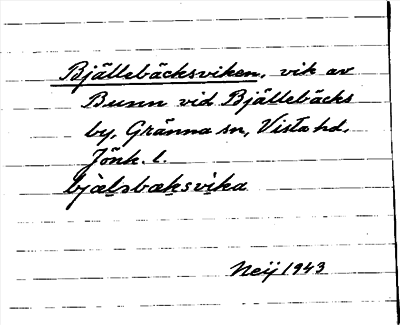 Bjällebäcksviken, vik av
Bunn vid Bjällebäcks
by, Gränna sn, Vista hd,
Jönk. l.
bjælsbæksvika
Neij 1943